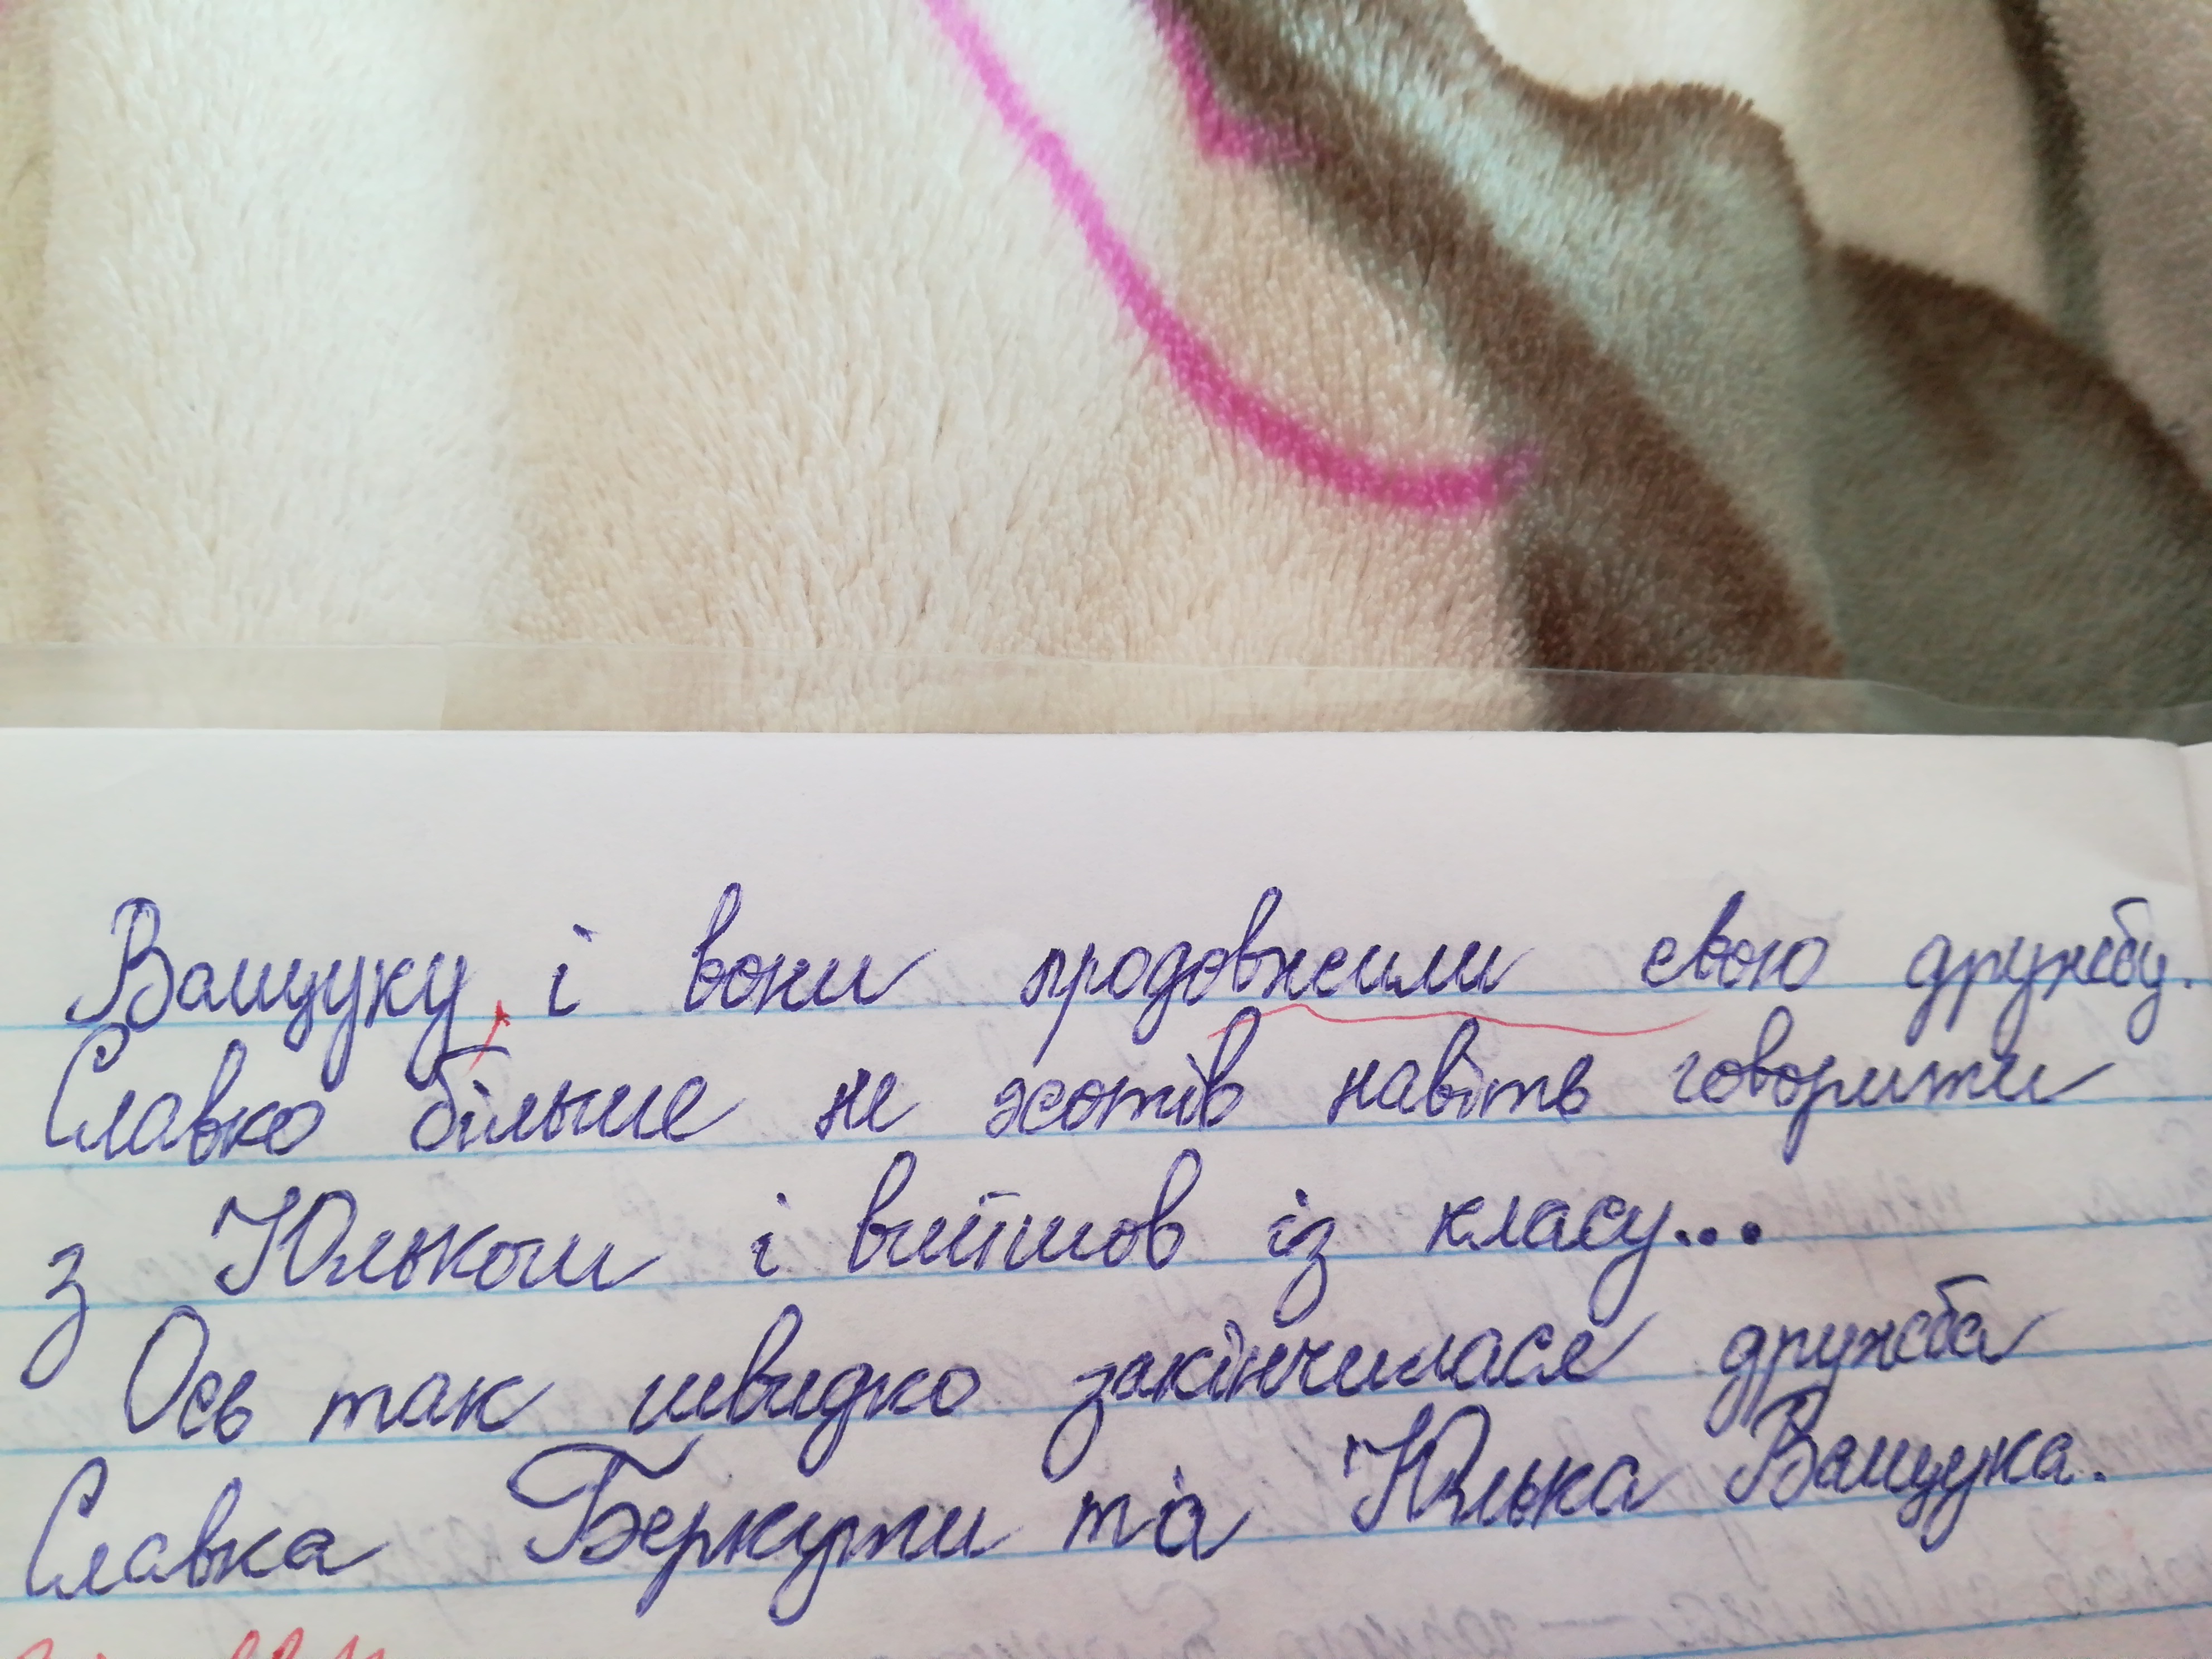 Ващуку, і вони продовжили свою дружбу.
Славко більше не хотів навіть говорити
з Юльком і вийшов із класу...
Ось так швидко закінчилася дружба
Славка Беркути та Юлька Ващука.